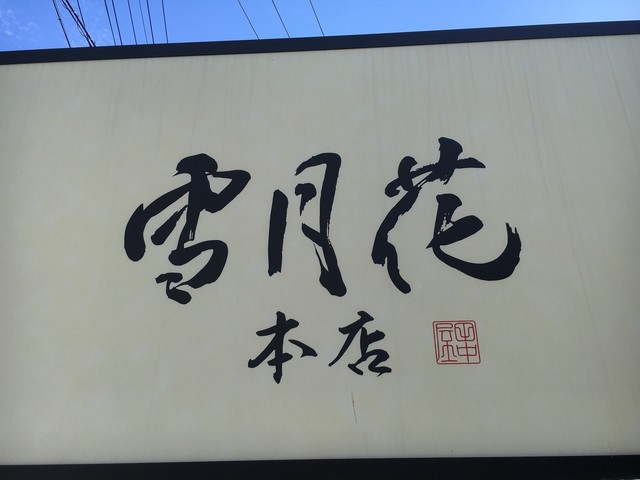 雪月花
本店